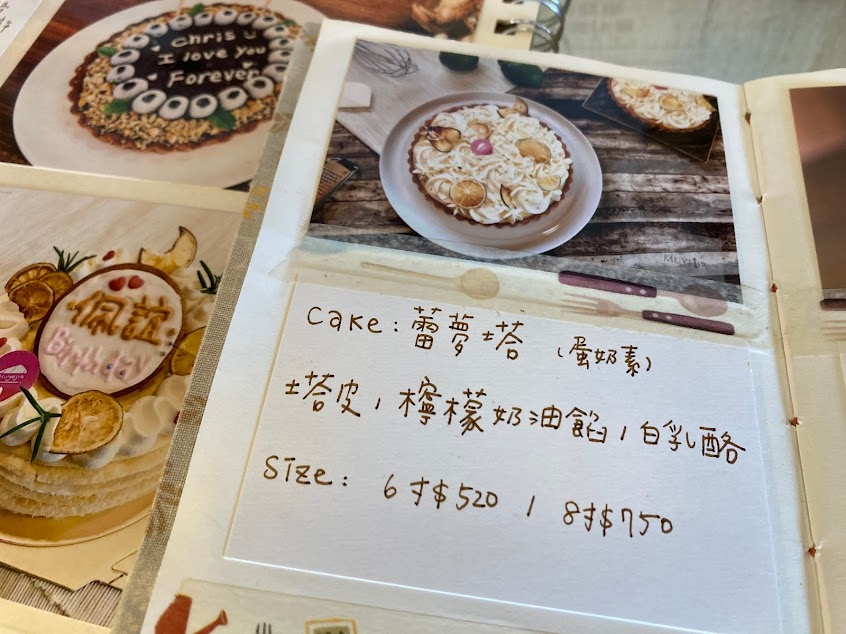 Chris
I love you
Forever
佩誼
Birthday
Cake: 蕾夢塔 (蛋奶素)
塔皮, 檸檬奶油餡, 白乳酪
Size: 6寸$520, 8寸$750